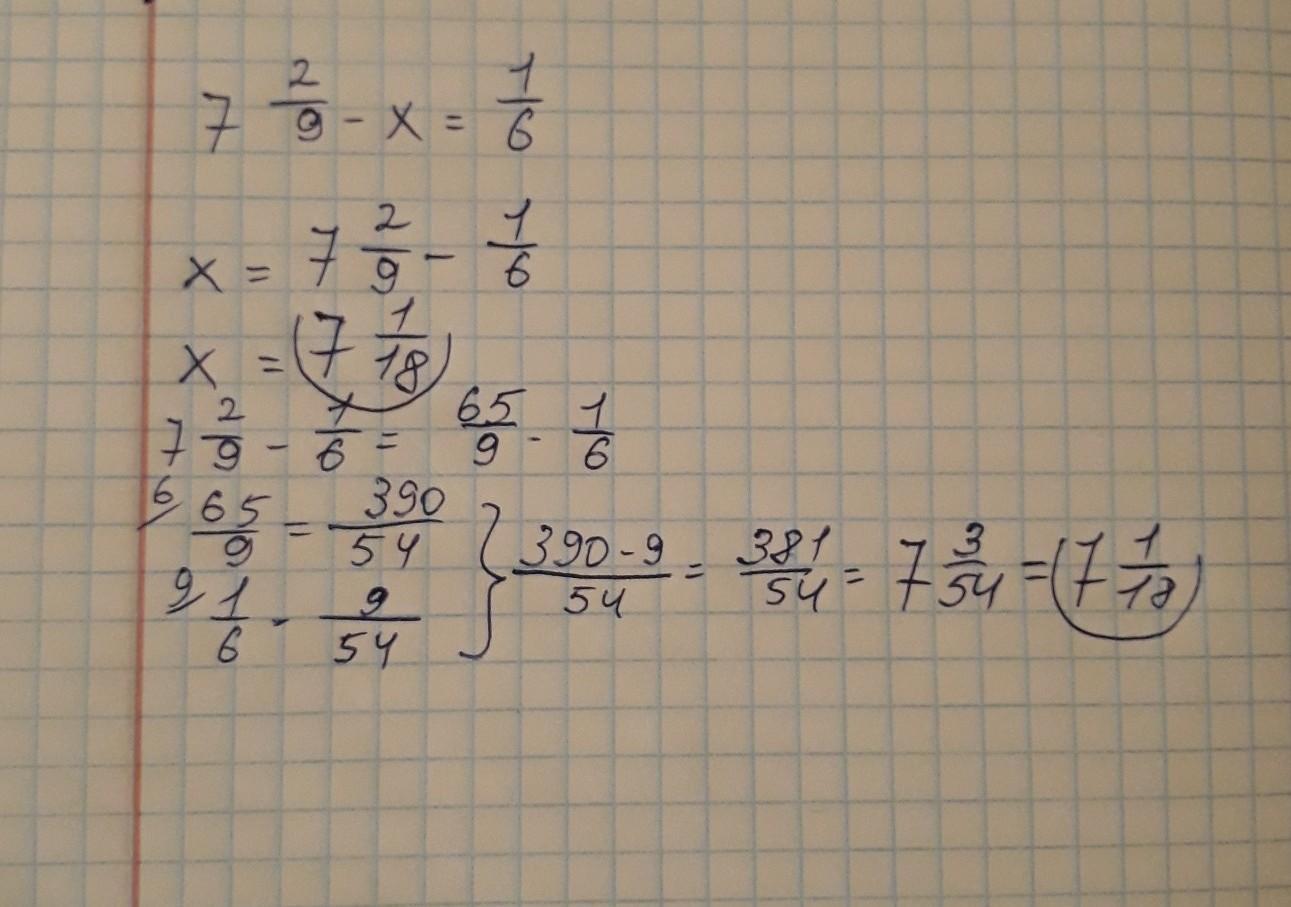 7 2/9 - x = 1/6
x = 7 2/9 - 1/6
x = (7 1/18)
7 2/9 - 1/6 = 65/9 - 1/6
6/ 65/9 = 390/54 } 390-9/54 = 381/54 = 7 3/54 = (7 1/18)
9/ 1/6 - 9/54